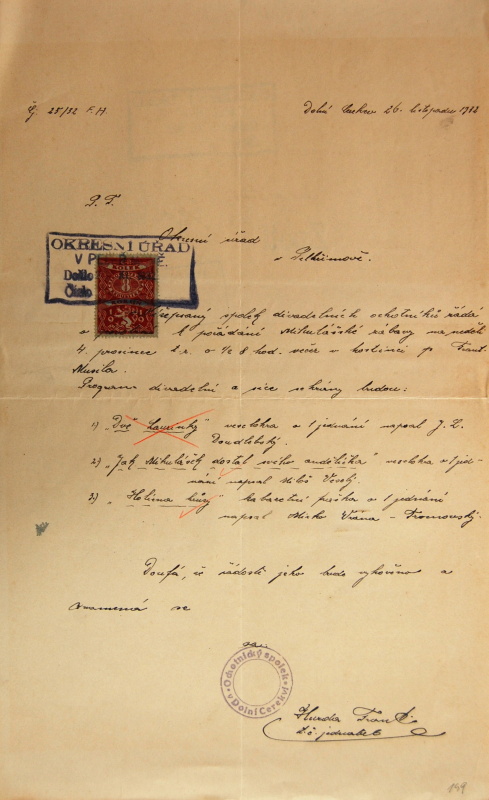 Čj 28/32 F. H. Dolní Cerekev 26. listopadu 1932
P. T.
Okresní úřad
v Pelhřimově.
OKRESNÍ ÚŘAD
V P
Došlo
Číslo
KOLEK
spolek divadelních ochotníků žádá
o k pořádání Mikulášské zábavy na neděli
4. prosince t. r. o ½ 8 hod. večer v hostinci p. Frant.
Musila.
Program divadelní a sice sehrány budou:
1) "Dvě " veselohra o 1 jednání napsal J. L.
Doudlebský.
2) "Jak Mikulášek dostal svého andělíčka" veselohra o 1 jed-
nání napsal Miloš Veselý.
3) " " kabaretní fraška o 1 jednání
napsal Mirko Vrána - Fromovský.
Doufá, že žádosti jeho bude vyhověno a
znamená se
Ochotnický spolek
v Dolní Cerekvi
Frant.
t. č. jednatel
149